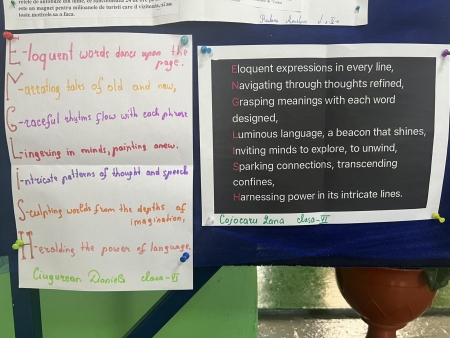 este un magnet pentru milioanele de turisti care îl vizitează, zi an
toate motivele sa o faca.
E-loquent words dance upon the
page.
N-arrating tales of old and new,
G-raceful rhythms flow with each phrase
L-ingering in minds, painting anew.
I-ntricate patterns of thought and speech
S-culpting worlds from the depths of
imagination,
H-eralding the power of language.
Ciugurean Daniel clasa-VI
Eloquent expressions in every line,
Navigating through thoughts refined,
Grasping meanings with each word
designed,
Luminous language, a beacon that shines,
Inviting minds to explore, to unwind,
Sparking connections, transcending
confines,
Harnessing power in its intricate lines.
Cojocaru Dana clasa-VI